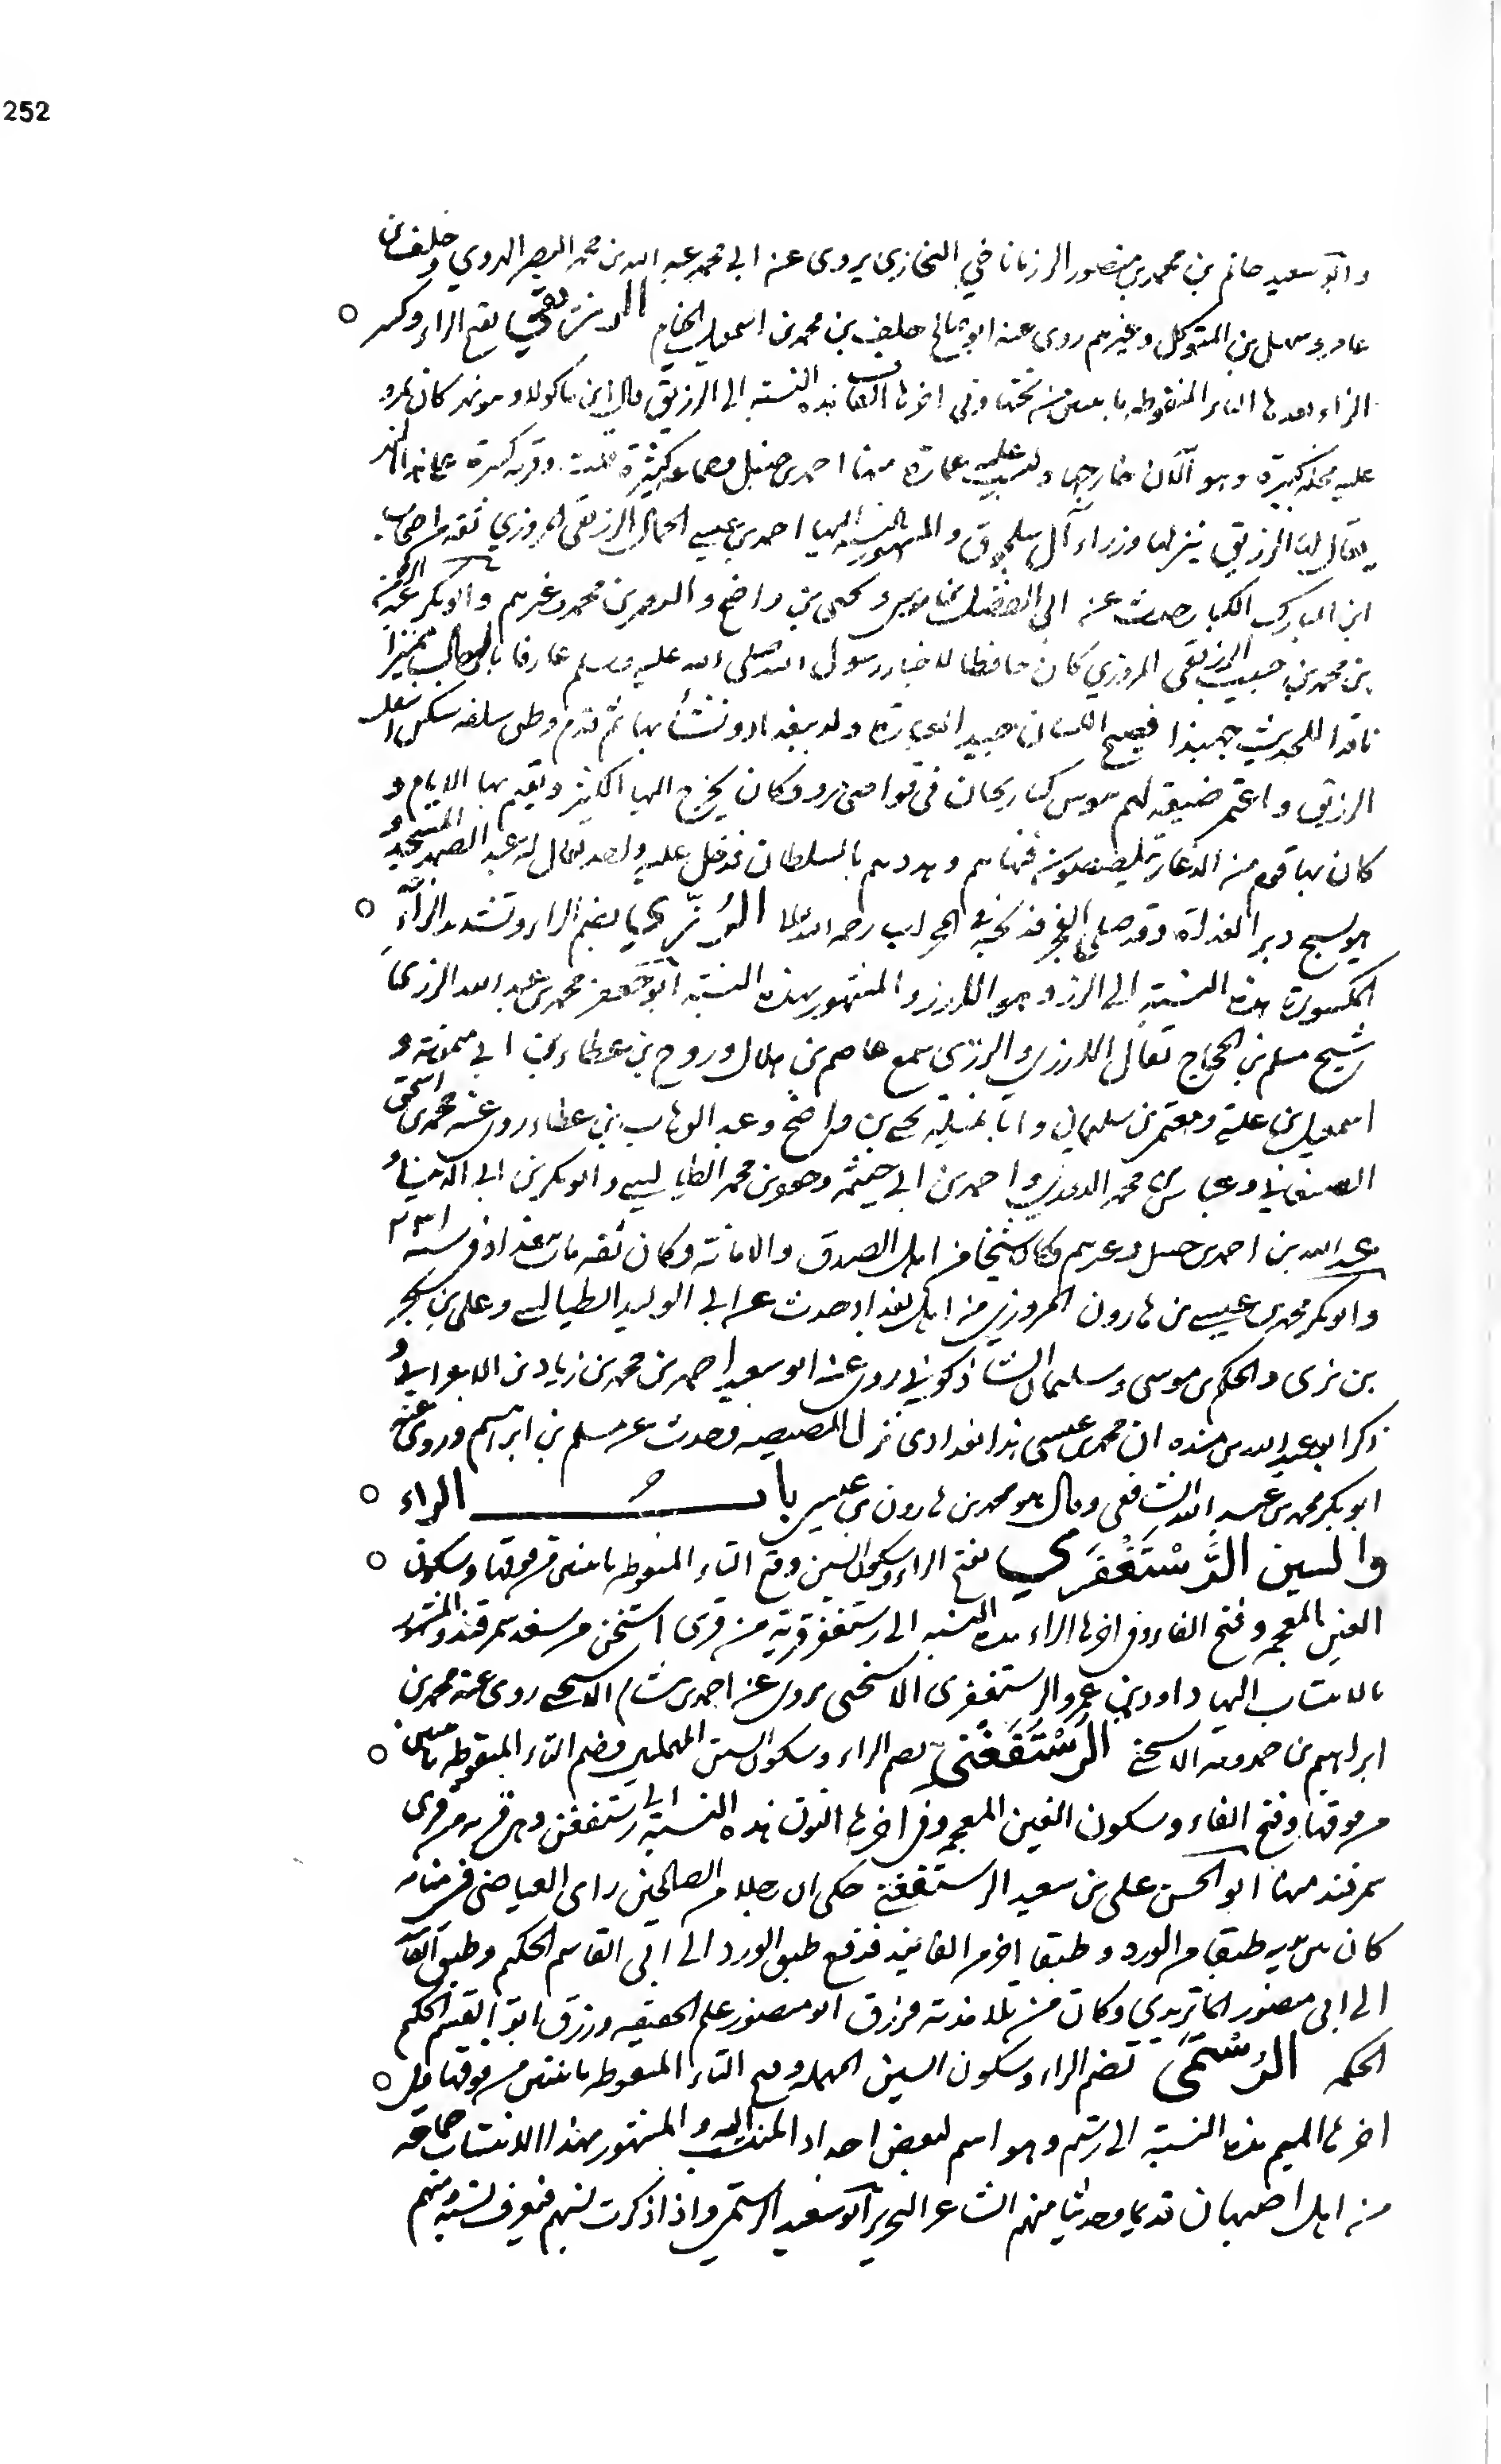 252
وابو سعيد حاتم بن محمد بن منصور الرزماناخي البخاري يروى عن ابي محمد عبد الله بن محمد النضر الهروي وخلف بن
عامر وسهل بن المتوكل وغيرهم روى عنه ابو صالح خلف بن محمد بن اسمعيل الخيام الرزيقي بفتح الراء وكسر
الزاء بعدها الياء المنقوطة باثنتين من تحتها وفي اخرها القاف هذه النسبة الى الرزيق قال ابن ماكولا وهو نهر كان بمرو
عليه محلة كبيرة وهو الآن خارجها وليس عليه عمارة منها احمد بن حنبل وجماعة كثيرة قلت وقرية كبيرة على هذا النهر
يقال لها الرزيق ينزلها وزراء آل سلجوق والمشهور بالنسبة اليها احمد بن عيسى الحمال الرزيقي المروزي ثقة من اصحاب
ابن المبارك الكبار حدث عنه الفضل بن موسى ويحيى بن واضح والنضر بن محمد وغيرهم وابو بكر عبد الرحمن
بن محمد بن حبيب الرزيقي المروزي كان حافظا لاخبار رسول الله صلى الله عليه وسلم عارفا بالرجال مميزا
ناقدا للحديث جهبذا فصيح اللسان جيد العبارة ولد ببغداد ونشأ بها ثم قدم وطن سلفه سكن اسفل
الرزيق واعتمر ضيعة لهم في نواحي مرو وكان يخرج اليها الكثير ويقيم بها الايام و
كان بها قوم من الدعار فنهاهم وهددهم بالسلطان فدخل عليه واحد يقال له عبد الصمد المسجد و
هو يسبح دبر الغداة وقد صلى الفجر فذبحه في المحراب رحمه الله تعالى الرزي بضم الراء وتشديد الزاء
المكسورة هذه النسبة الى الرز وهو الارز والمشهور بهذه النسبة ابو جعفر محمد بن عبد الله الرزي
شيخ مسلم بن الحجاج يقال الارزي والرزي سمع عاصم بن هلال وروح بن عطاء بن ابي ميمونة و
اسمعيل بن علية ومعتمر بن سليمان وابا تميلة يحيى بن واضح وعبد الوهاب بن عطاء روى عنه محمد بن اسحق
الصغاني وعباس بن محمد الدوري واحمد بن ابي خيثمة وجعفر بن محمد الطيالسي وابو بكر بن ابي الدنيا و
عبد الله بن احمد بن حنبل وغيرهم وكان شيخا من اهل الصدق والامانة وكان ثقة مات ببغداد في سنة ٢٣١
وابو بكر محمد بن عيسى بن هارون المروزي من اهل بغداد حدث عن ابي الوليد الطيالسي وعلي بن بحر
بن بري والحكم بن موسى وسليمان الشاذكوني روى عنه ابو سعيد احمد بن محمد بن زياد بن الاعرابي و
ذكر ابو عبد الله بن منده ان محمد بن عيسى هذا بغدادى نزل المصيصه وحدث عن مسلم بن ابراهيم وروى عنه
ابو بكر محمد بن عبد الله الشافعي وقال هو محمد بن هارون بن عيسى باب الراء
والسين الرَّسْتَغْفَري بفتح الراء وسكون السين وفتح التاء المنقوطة باثنتين من فوقها وسكون
الغين المعجمة وفتح الفاء وفي اخرها الراء هذه النسبة الى رستغفر قرية من قرى اشتيخن من سغد سمرقند والمشهور
بالانتساب اليها داود بن عمرو الرستغفرى الاشتيخني يروى عن احمد بن هشام الاشتيخني روى عنه محمد بن
ابراهيم بن حمدويه الاشتيخني الرُسْتَفَغْني بضم الراء وسكون السين المهملة وضم التاء المنقوطة باثنتين
من فوقها وفتح الفاء وسكون الغين المعجمة وفي اخرها النون هذه النسبة الى رستفغن وهي قرية من قرى
سمرقند منها ابو الحسن على بن سعيد الرستفغني حكى ان رجلا من الصالحين راى العياضى في منامه
كان بين يديه طبقا من الورد وطبقا اخر من الفانيد فدفع طبق الورد الى ابي القاسم الحكيم وطبق الفانيد
الى ابي منصور الماتريدي وكان من تلامذته فرزق ابو منصور علم الحقيقة ورزق ابو القسم الحكيم
الحكمة الرُسْتَمى بضم الراء وسكون السين المهملة وفتح التاء المنقوطة باثنتين من فوقها وفي
اخرها الميم هذه النسبة الى رستم وهو اسم لبعض اجداد المنتسب اليه والمشهور بهذا الانتساب جماعة
من اهل اصبهان قديما وحديثا منهم الشاعر النحرير ابو سعيد الرستمي واذا ذكرت نسبهم فيعرف نسبة منهم